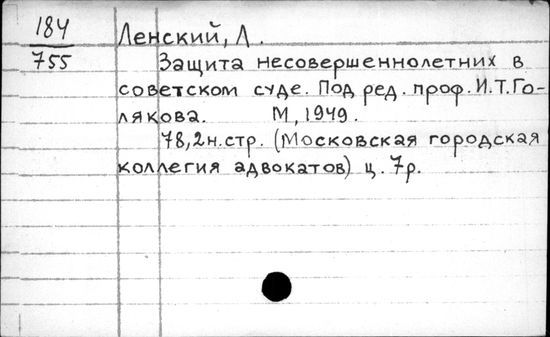 184
755
Ленский, Л.
Защита несовершеннолетних в
советском суде. Под ред. проф. И.Т.Го-
лякова. М, 1949.
78,2н.стр. (Московская городская
коллегия адвокатов) ц. 7р.